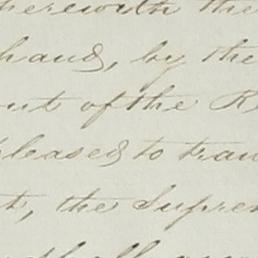 herewith the
hand, by the
out of the R
pleased to tran
t, the Suprem